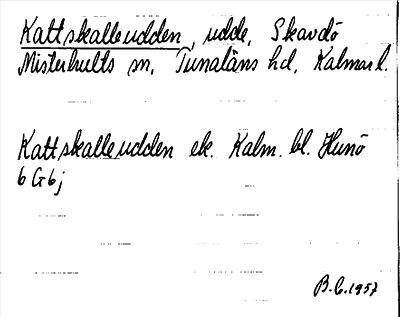 Kattskalleudden, udde, Skavdö
Misterhults sn, Tunaläns hd, Kalmar l.
Kattskalleudden ek. Kalm. bl. Hunö
6 G 6 j
B.C. 1957